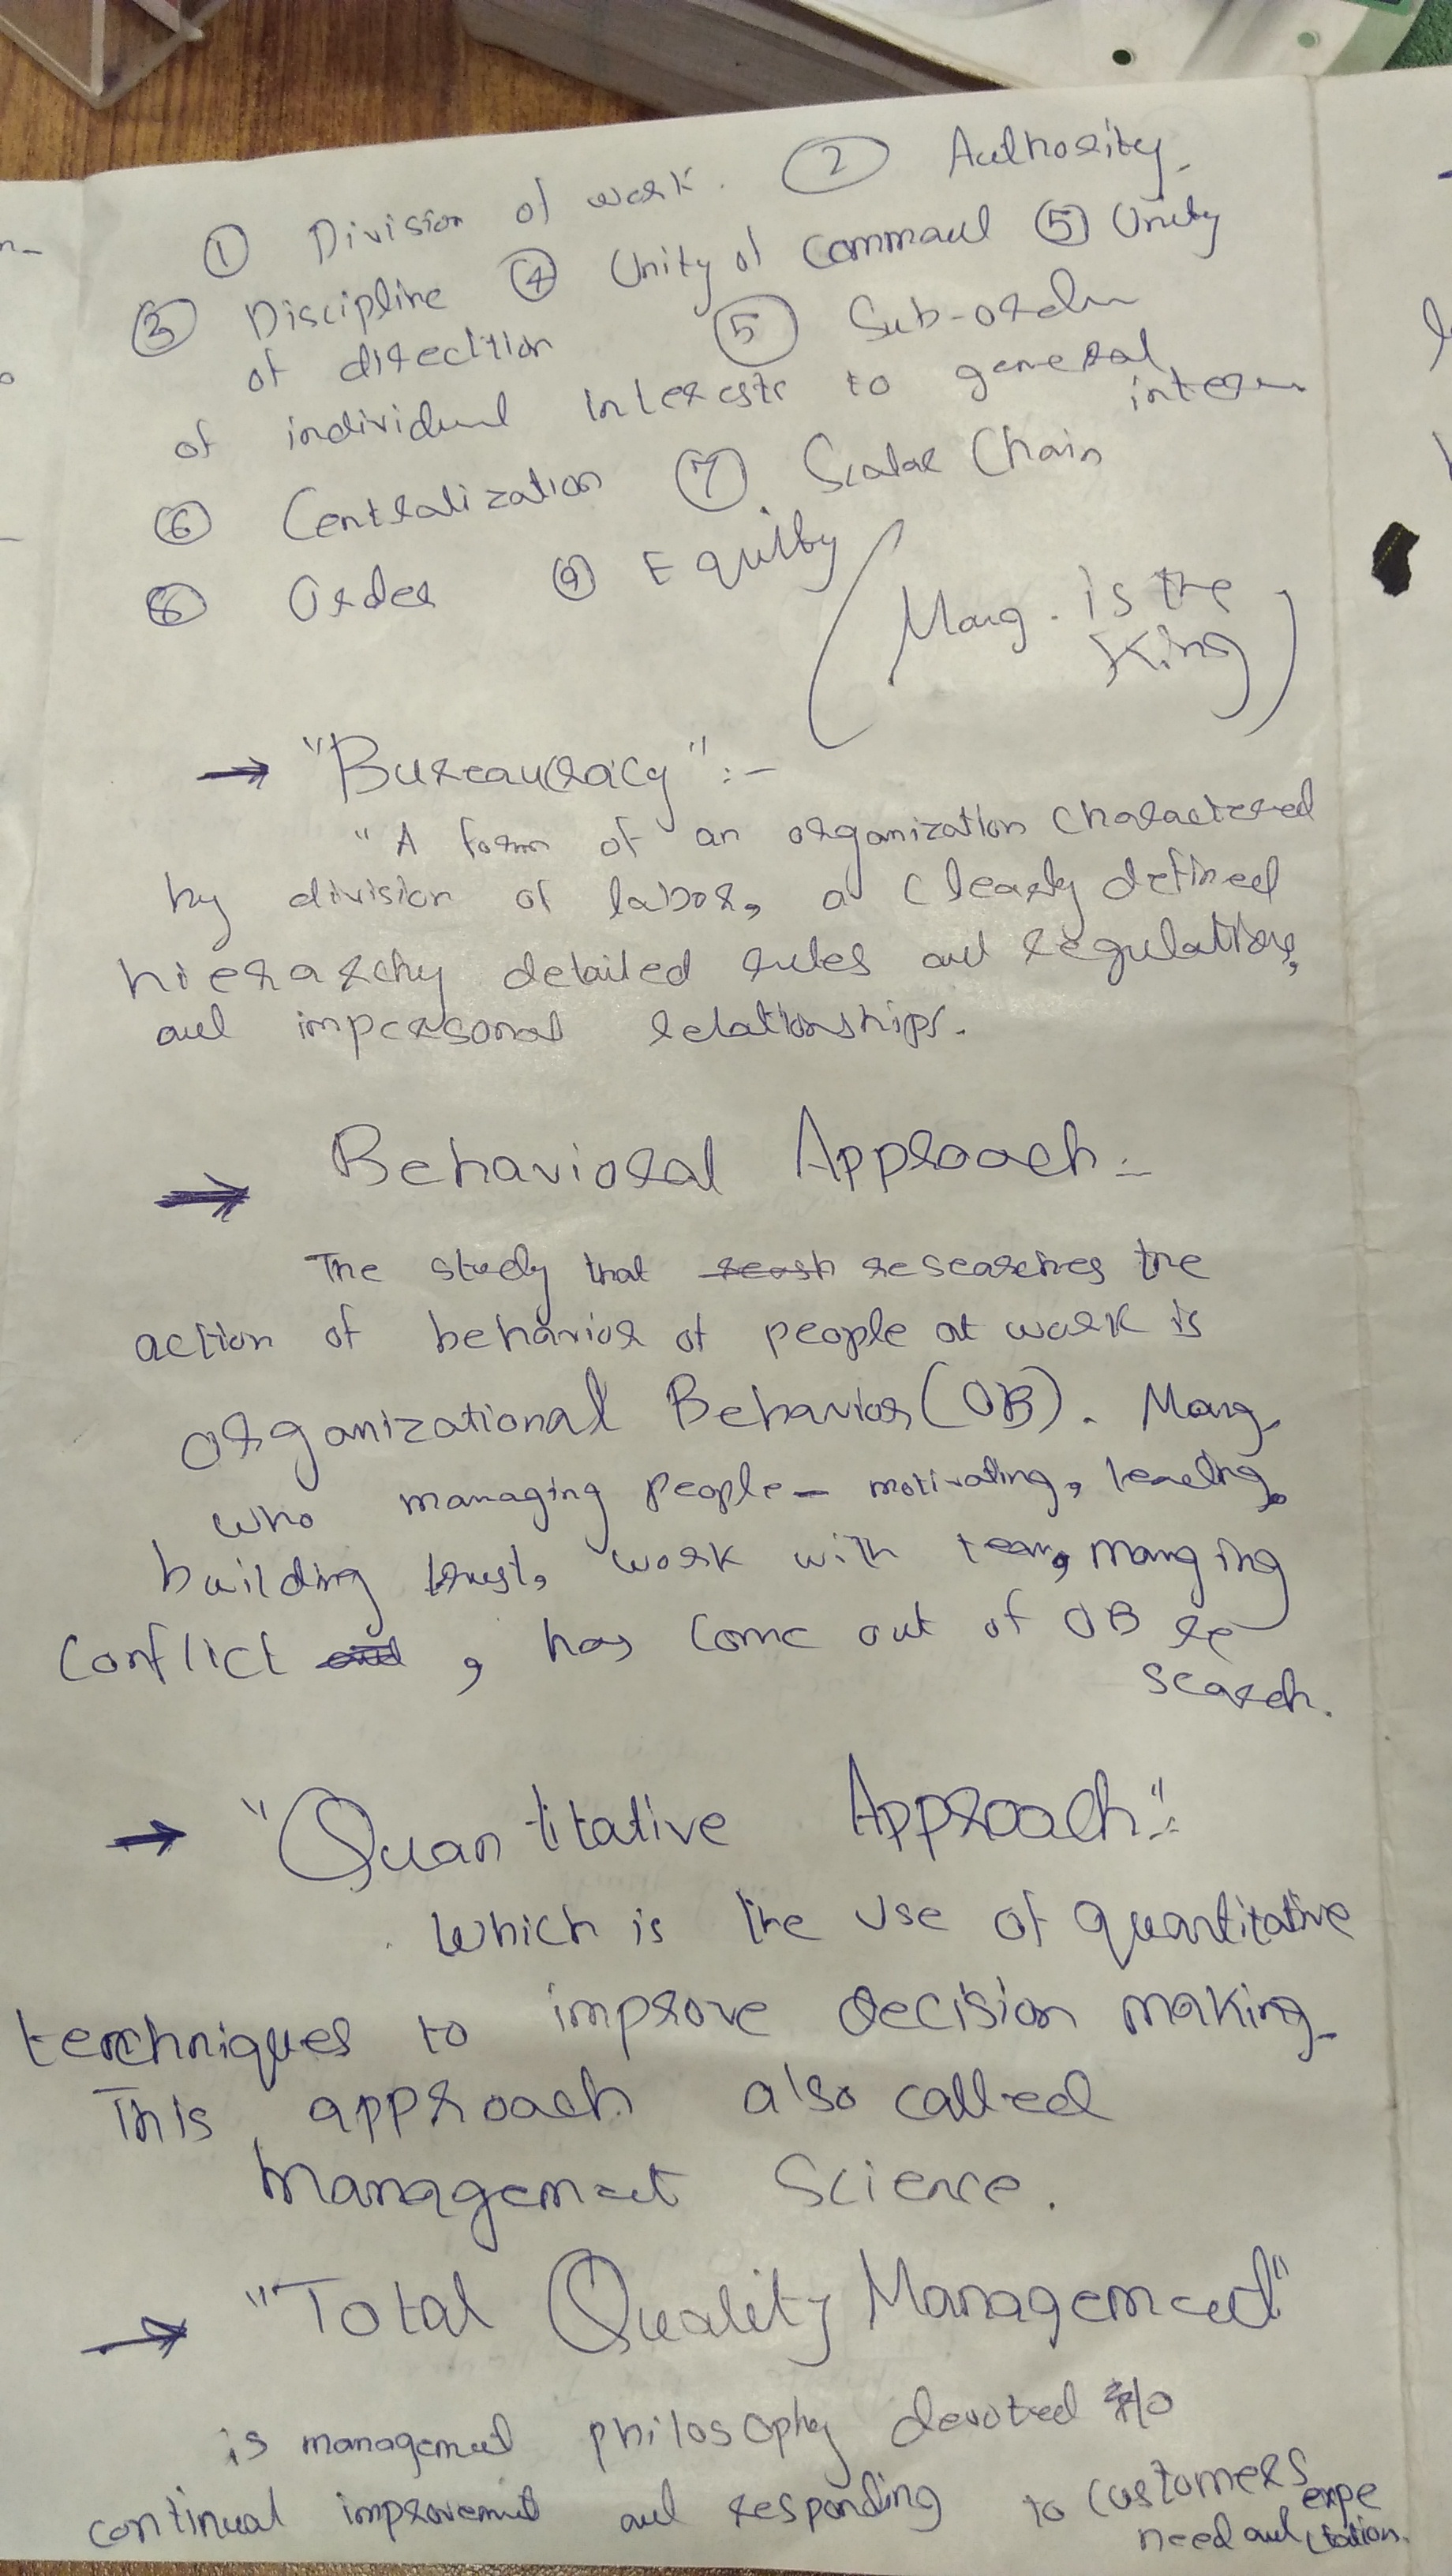 ① Division of work. ② Authority.
③ Discipline ④ Unity of Command ⑤ Unity
of direction ⑤ Sub-order
of individual interests to general
interes
⑥ Centralization ⑦ Scalar Chain
⑧ Order ⑨ Equity
(Mang. is the
King)
→ "Bureaucracy" :-
"A form of an organization charactered
by division of labor, a clearly defined
hierarchy detailed rules and regulations,
and impersonal relationships.
→ Behavioral Approach :-
The study that researches the
action of behavior of people at work is
organizational Behavior (OB). Mang.
who managing people - motivating, leading,
building trust, work with team, manging
conflict , has come out of OB re
search.
→ "Quantitative Approach":
Which is the use of quantitative
terchniques to improve decision making.
This approach also called
Management Science.
→ "Total Quality Management"
is management philosophy devoted to
continual improvement and responding to customers
need and expe
ctation.